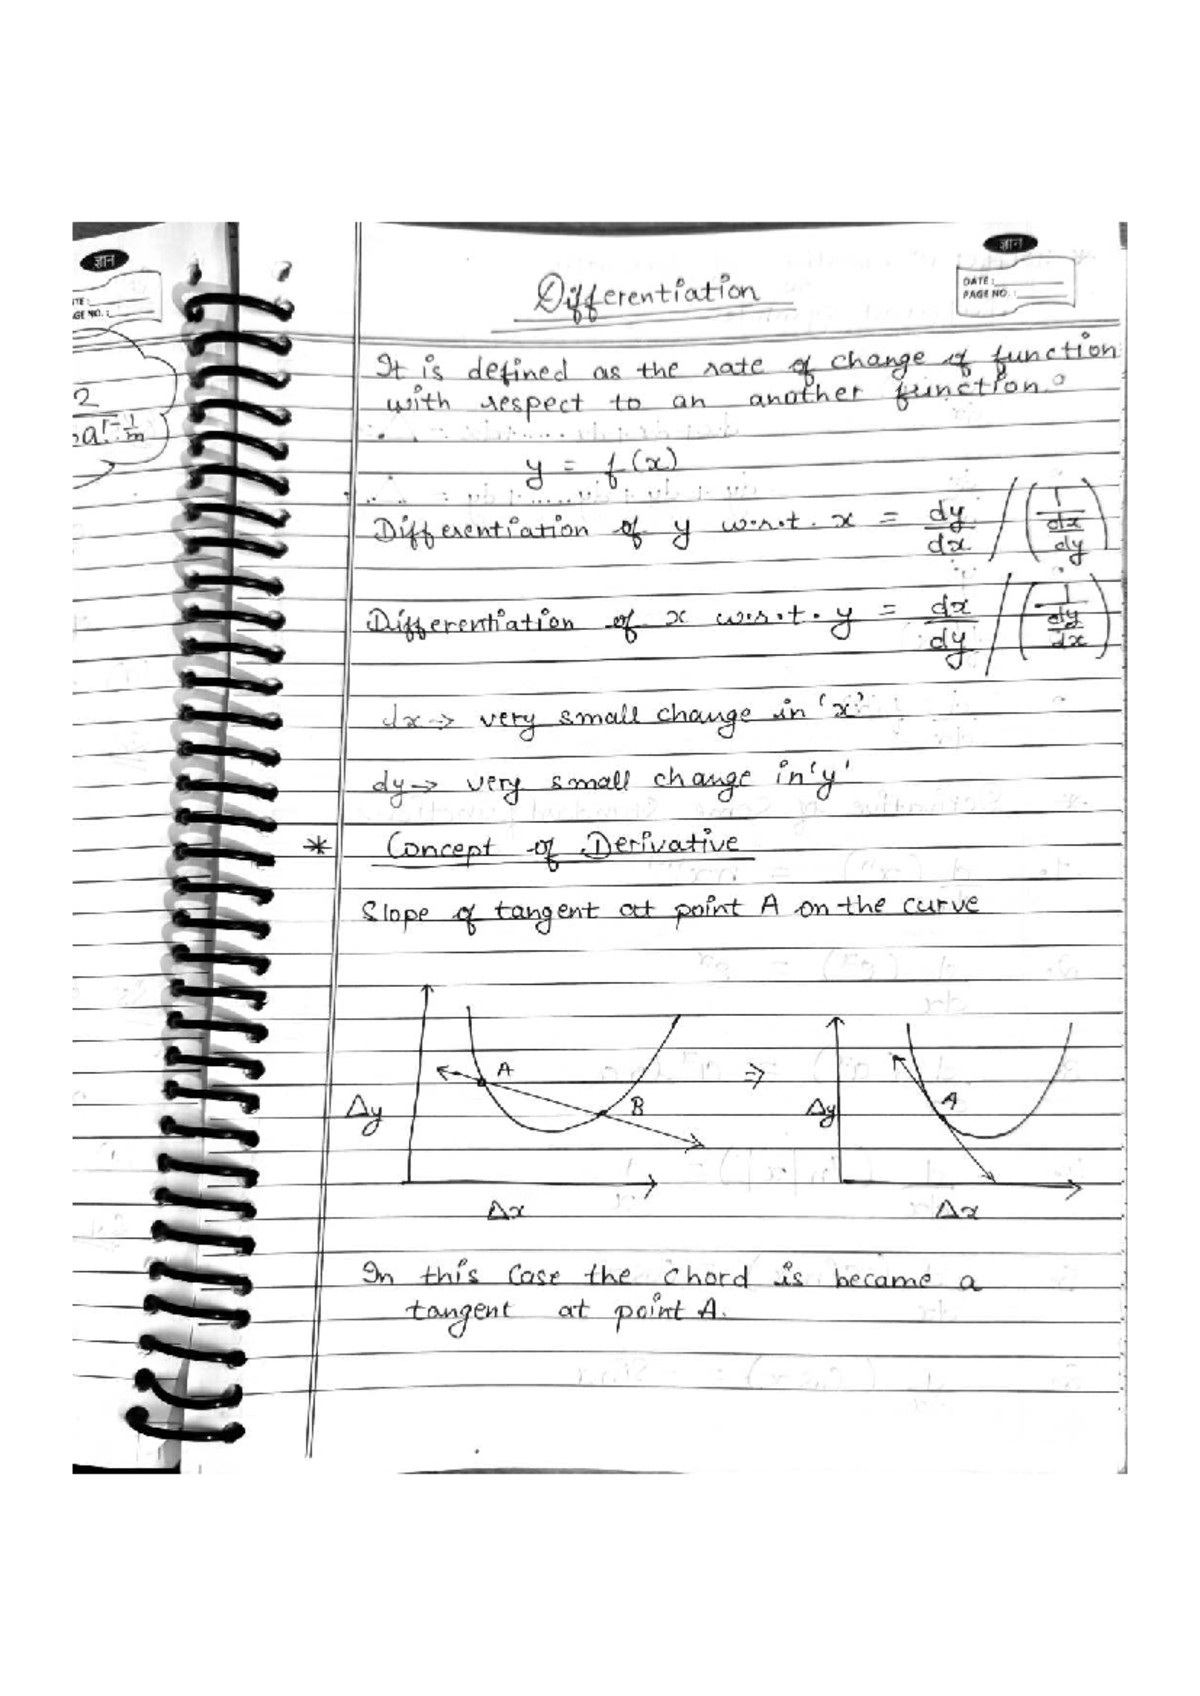 ज्ञान
ज्ञान
DATE:
PAGE NO.:
TE:
GE NO.:
2
Differentiation
It is defined as the rate of change of function
with respect to an another function.
y = f(x)
Differentiation of y w.r.t. x = dy/dx / (1/(dx/dy))
Differentiation of x w.r.t. y = dx/dy / (1/(dy/dx))
dx → very small change in 'x'
dy → very small change in 'y'
* Concept of Derivative
Slope of tangent at point A on the curve
A B Δy Δx
⇒
A Δy Δx
In this case the chord is became a
tangent at point A.